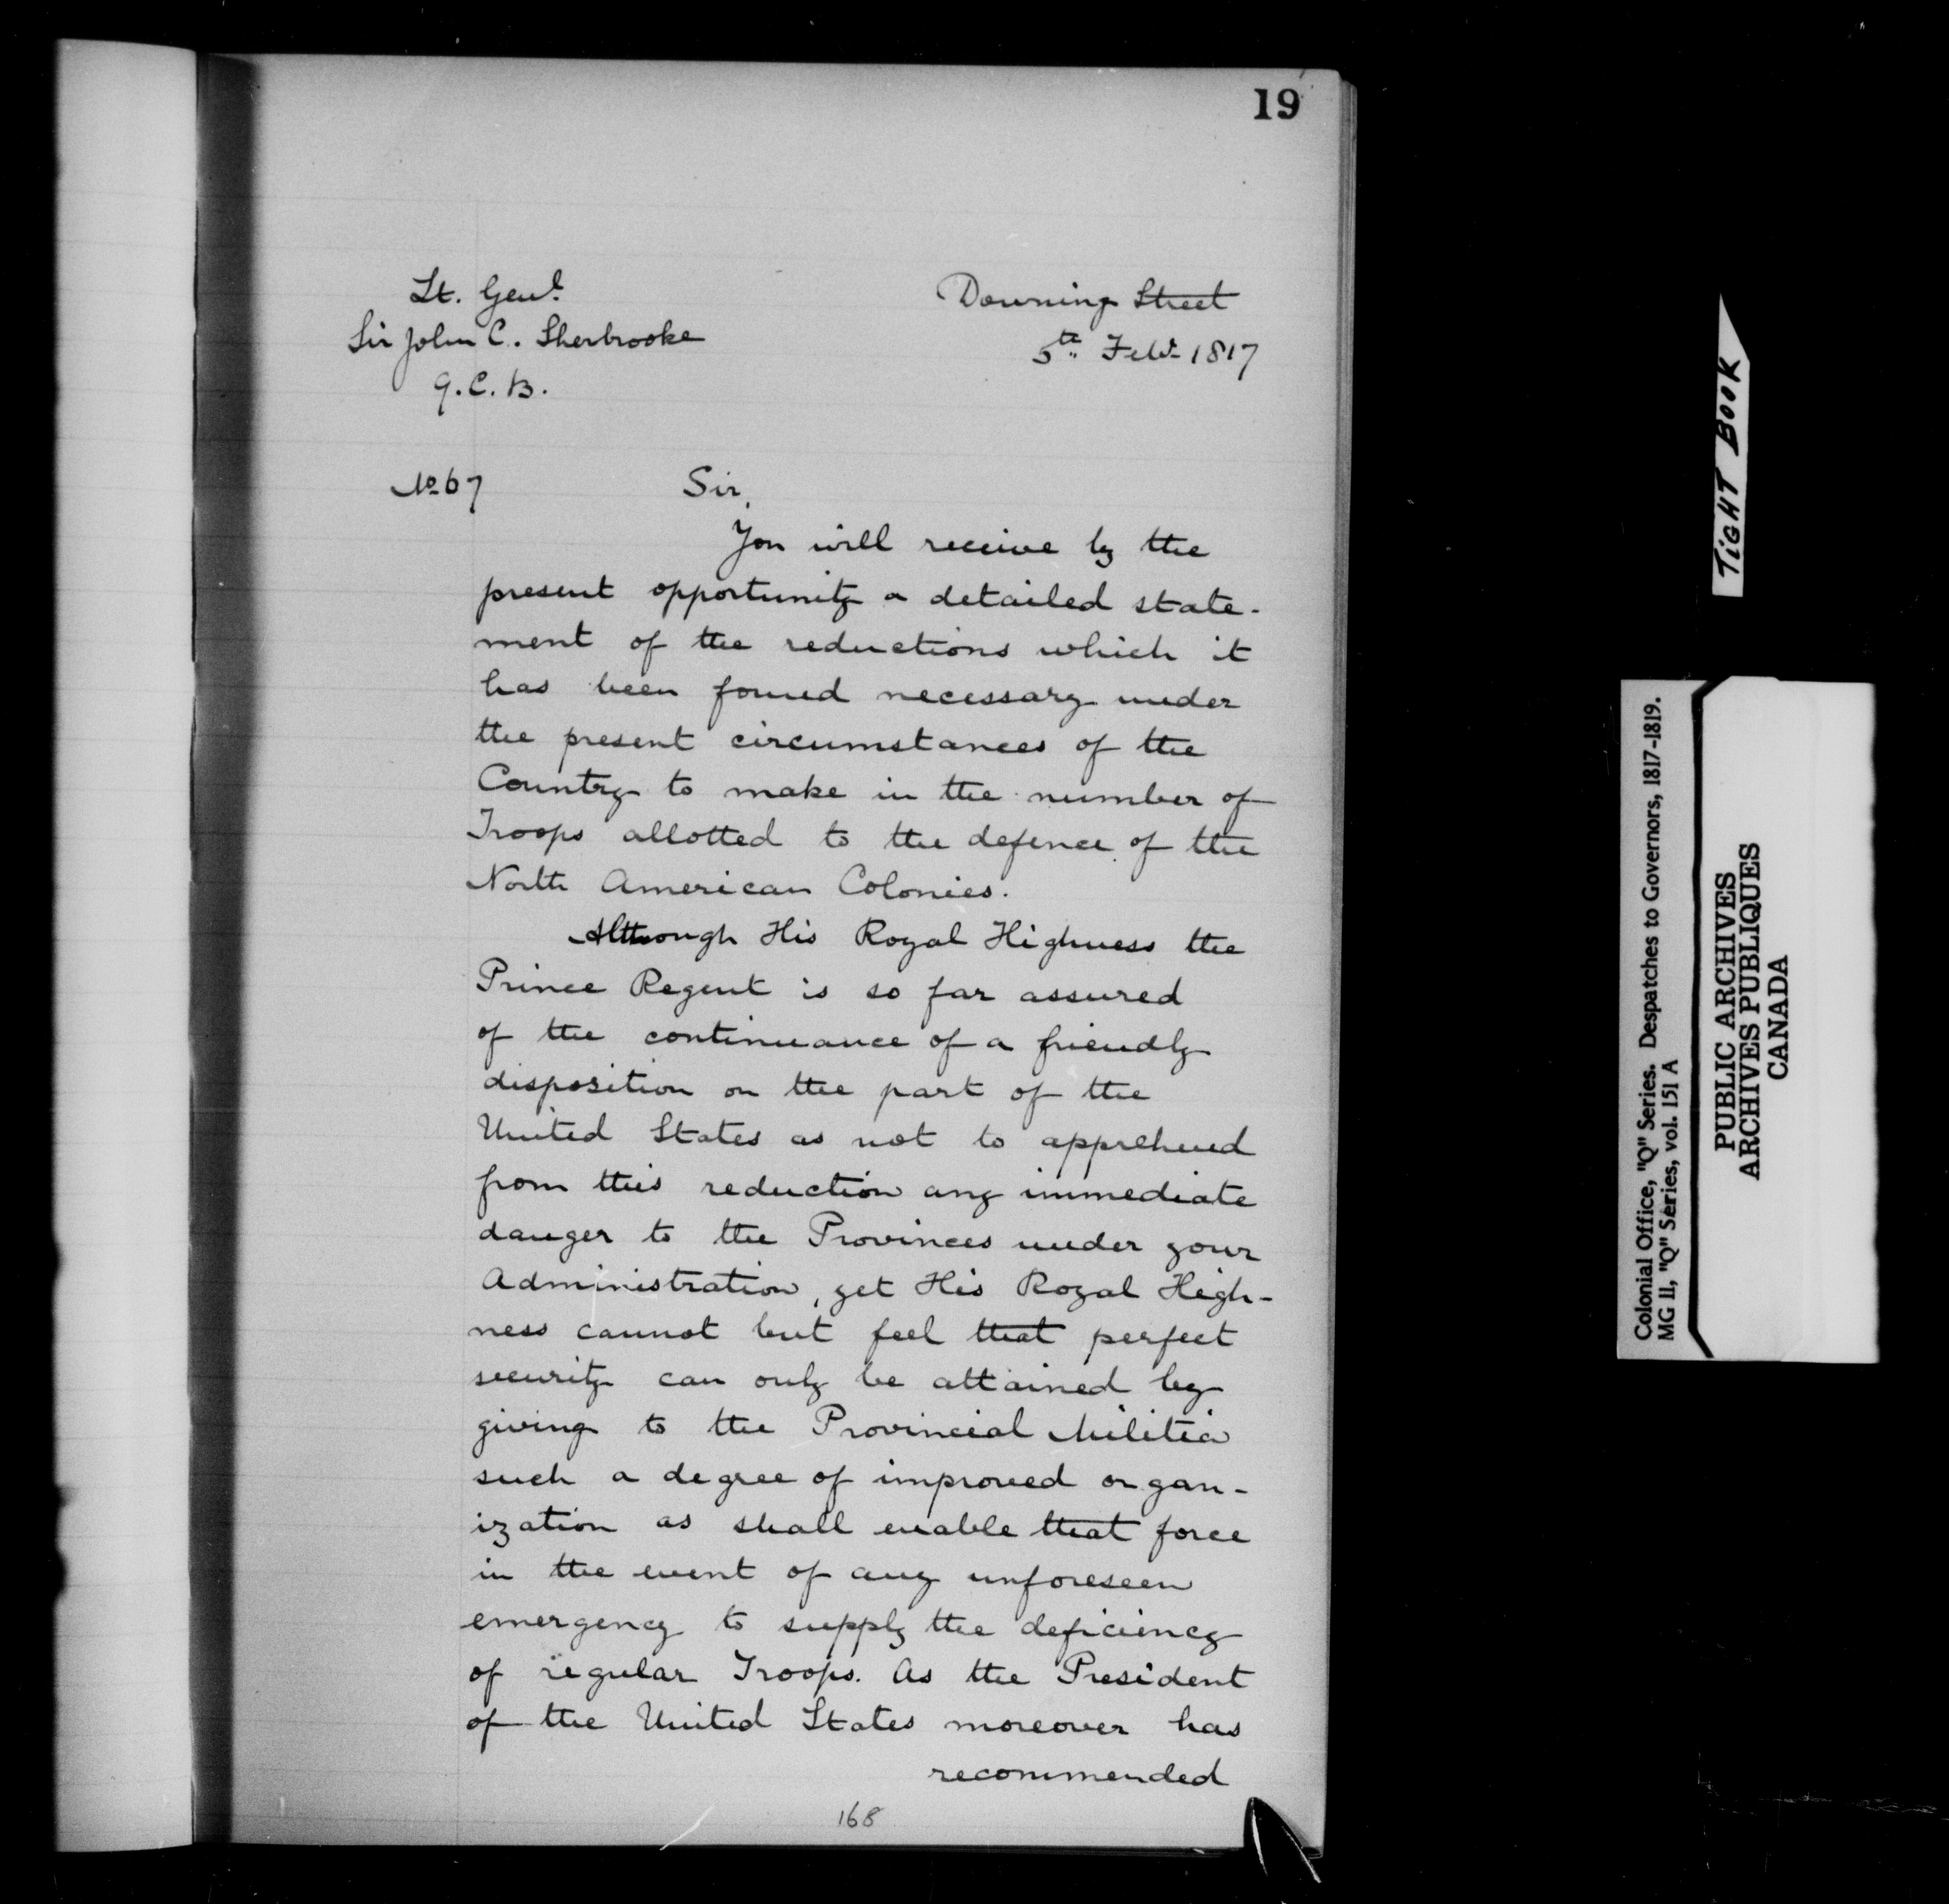 19
Lt. Genl.
Sir John C. Sherbrooke
G.C.B.
Downing Street
5th Feb. 1817
No 67
Sir,
You will receive by the
present opportunity a detailed state-
ment of the reductions which it
has been found necessary under
the present circumstances of the
Country to make in the number of
Troops allotted to the defence of the
North American Colonies.
Although His Royal Highness the
Prince Regent is so far assured
of the continuance of a friendly
disposition on the part of the
United States as not to apprehend
from this reduction any immediate
danger to the Provinces under your
Administration, yet His Royal High-
ness cannot but feel that perfect
security can only be attained by
giving to the Provincial Militia
such a degree of improved organ-
ization as shall enable that force
in the event of any unforeseen
emergency to supply the deficiency
of regular Troops. As the President
of the United States moreover has
recommended
168
TIGHT BOOK
Colonial Office, "Q" Series. Despatches to Governors, 1817-1819.
MG 11, "Q" Series, vol. 151 A
PUBLIC ARCHIVES
ARCHIVES PUBLIQUES
CANADA